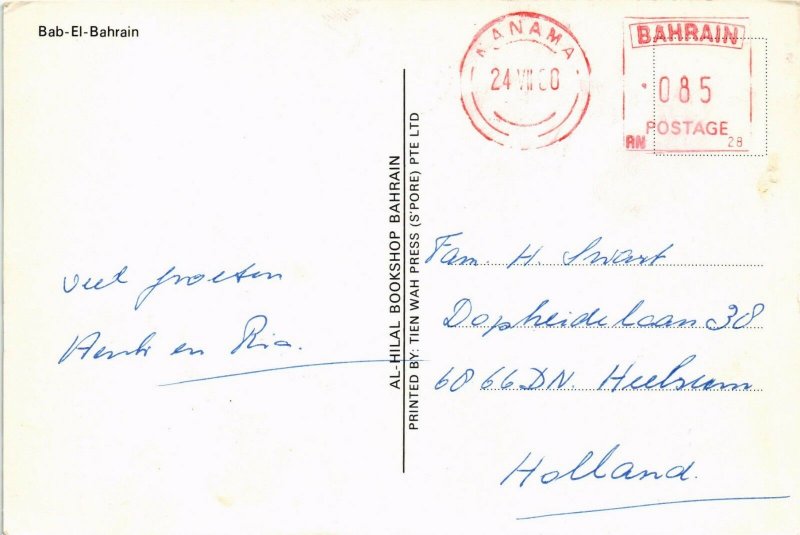 Bab-El-Bahrain
MANAMA
24 VII 80
BAHRAIN
085
POSTAGE
RN 28
AL-HILAL BOOKSHOP BAHRAIN
PRINTED BY: TIEN WAH PRESS (S'PORE) PTE LTD
veel groeten
Henk en Ria.
Fam. H. Swart
Dopheidelaan 38
6866 DN. Heelsum
Holland.